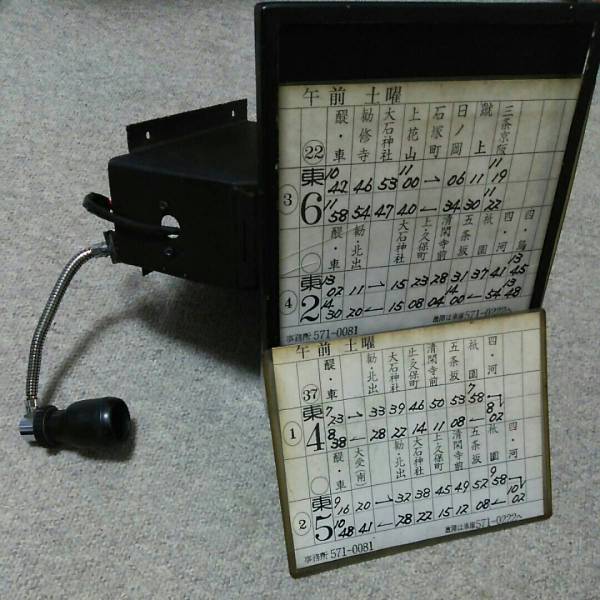 午前 土曜
22 醍・車 勧修寺 大石神社 上花山 石塚町 日ノ岡 蹴上 三条京阪
3 東6 10 42 46 53 11 00 → 06 11 11 19
11 58 54 47 40 ← 34 30 11 22
醍・車 勧・北出 大石神社 上・久保町 清閑寺前 五条坂 祇園 四・河 四・烏
4 東2 13 02 11 → 15 23 28 31 37 41 13 45
14 30 20 ← 15 08 04 14 00 ← 54 13 48
事務所 571-0081
571-0222へ
午前 土曜
37 醍・車 勧・北出 大石神社 上・久保町 清閑寺前 五条坂 祇園 四・河
1 東4 7 23 → 33 39 46 50 53 7 58 ㄱ
8 38 ← 28 22 14 11 08 ← 8 02
醍・車 大受(南) 勧・北出 大石神社 上久保町 清閑寺前 五条坂 祇園 四・河
2 東5 9 16 20 → 32 38 45 49 52 9 58 ㄱ
10 48 41 ← 28 22 15 12 08 ← 10 02
事務所 571-0081
571-0222へ